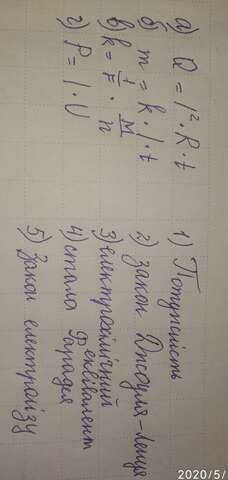 а) Q = I² · R · t
б) m = k · I · t
в) k = 1/F · M/n
г) P = I · U
1) Потужність
2) закон Джоуля-Ленца
3) електрохімічний
еквівалент
4) стала Фарадея
5) Закон електролізу
2020/5/